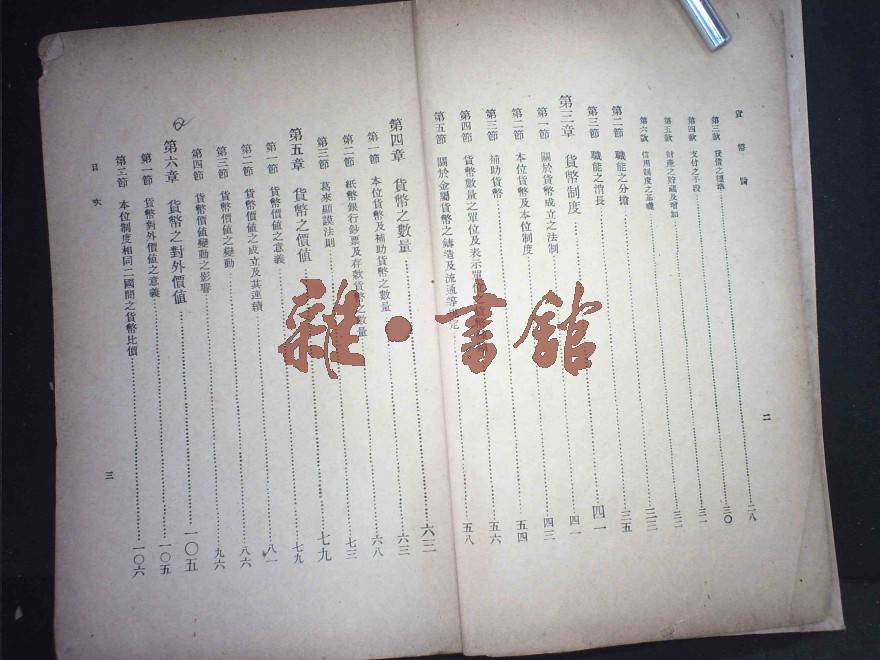 貨幣論
第三款 貸借之標準……二八
第四款 支付之手段……三〇
第五款 財產之貯藏及增加……三一
第六款 信用制度之基礎……三二
第二節 職能之分擔……三三
第三節 職能之消長……三五
第三章 貨幣制度……四一
第一節 關於貨幣成立之法制……四一
第二節 本位貨幣及本位制度……四三
第三節 補助貨幣……五四
第四節 貨幣數量之單位及表示單位之……五六
第五節 關於金屬貨幣之鑄造及流通等規定……五八
二
第四章 貨幣之數量……六三
第一節 本位貨幣及補助貨幣之數量……六三
第二節 紙幣銀行鈔票及存款貨幣之數量……六八
第三節 葛來顯謨法則……七三
第五章 貨幣之價值……七九
第一節 貨幣價值之意義……七九
第二節 貨幣價值之成立及其連續……八一
第三節 貨幣價值之變動……八六
第四節 貨幣價值變動之影響……九六
第六章 貨幣之對外價值……一〇五
第一節 貨幣對外價值之意義……一〇五
第二節 本位制度相同二國間之貨幣比價……一〇六
目次
三
雜·書館